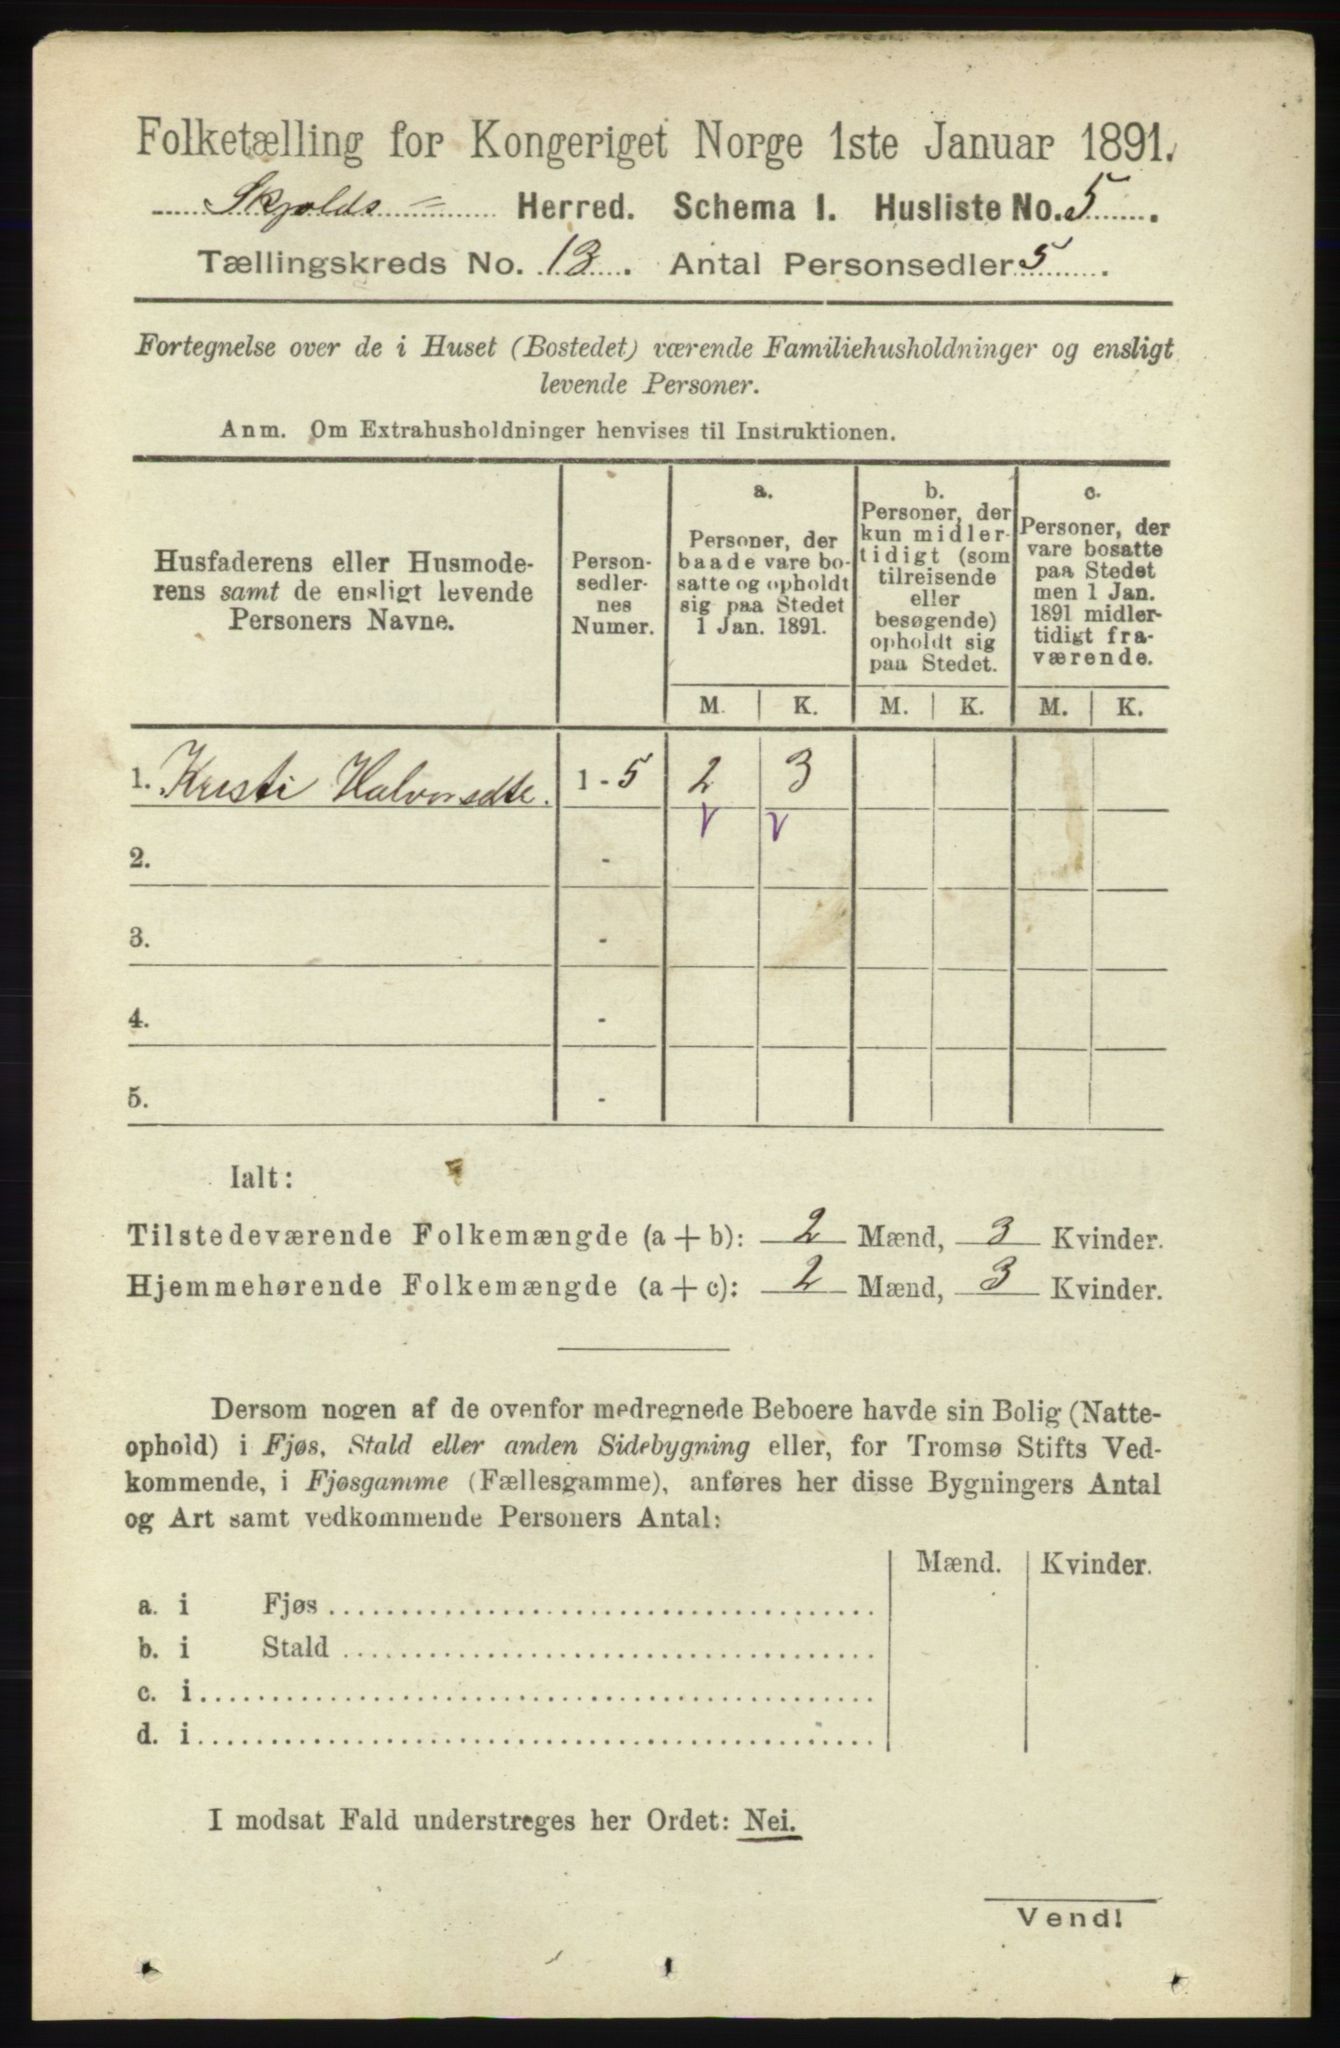 Folketælling for Kongeriget Norge 1ste Januar 1891.
Skjolds = Herred. Schema I. Husliste No. 5.
Tællingskreds No. 13. Antal Personsedler 5.
Fortegnelse over de i Huset (Bostedet) værende Familiehusholdninger og ensligt
levende Personer.
Anm. Om Extrahusholdninger henvises til Instruktionen.
Husfaderens eller Husmode-
rens samt de ensligt levende
Personers Navne.
Person-
sedler-
nes
Numer.
a.
Personer, der
baade vare bo-
satte og opholdt
sig paa Stedet
1 Jan. 1891.
b.
Personer, der
kun midler-
tidigt (som
tilreisende
eller
besøgende)
opholdt sig
paa Stedet.
c.
Personer, der
vare bosatte
paa Stedet
men 1 Jan.
1891 midler-
tidigt fra-
værende.
M. K. M. K. M. K.
1. Kristi Halvorsdtr. 1 - 5 2 3
2. -
3. -
4. -
5. -
Ialt:
Tilstedeværende Folkemængde (a + b): 2 Mænd, 3 Kvinder.
Hjemmehørende Folkemængde (a + c): 2 Mænd, 3 Kvinder.
Dersom nogen af de ovenfor medregnede Beboere havde sin Bolig (Natte-
ophold) i Fjøs, Stald eller anden Sidebygning eller, for Tromsø Stifts Ved-
kommende, i Fjøsgamme (Fællesgamme), anføres her disse Bygningers Antal
og Art samt vedkommende Personers Antal:
Mænd. Kvinder.
a. i Fjøs
b. i Stald
c. i
d. i
I modsat Fald understreges her Ordet: Nei.
Vend!